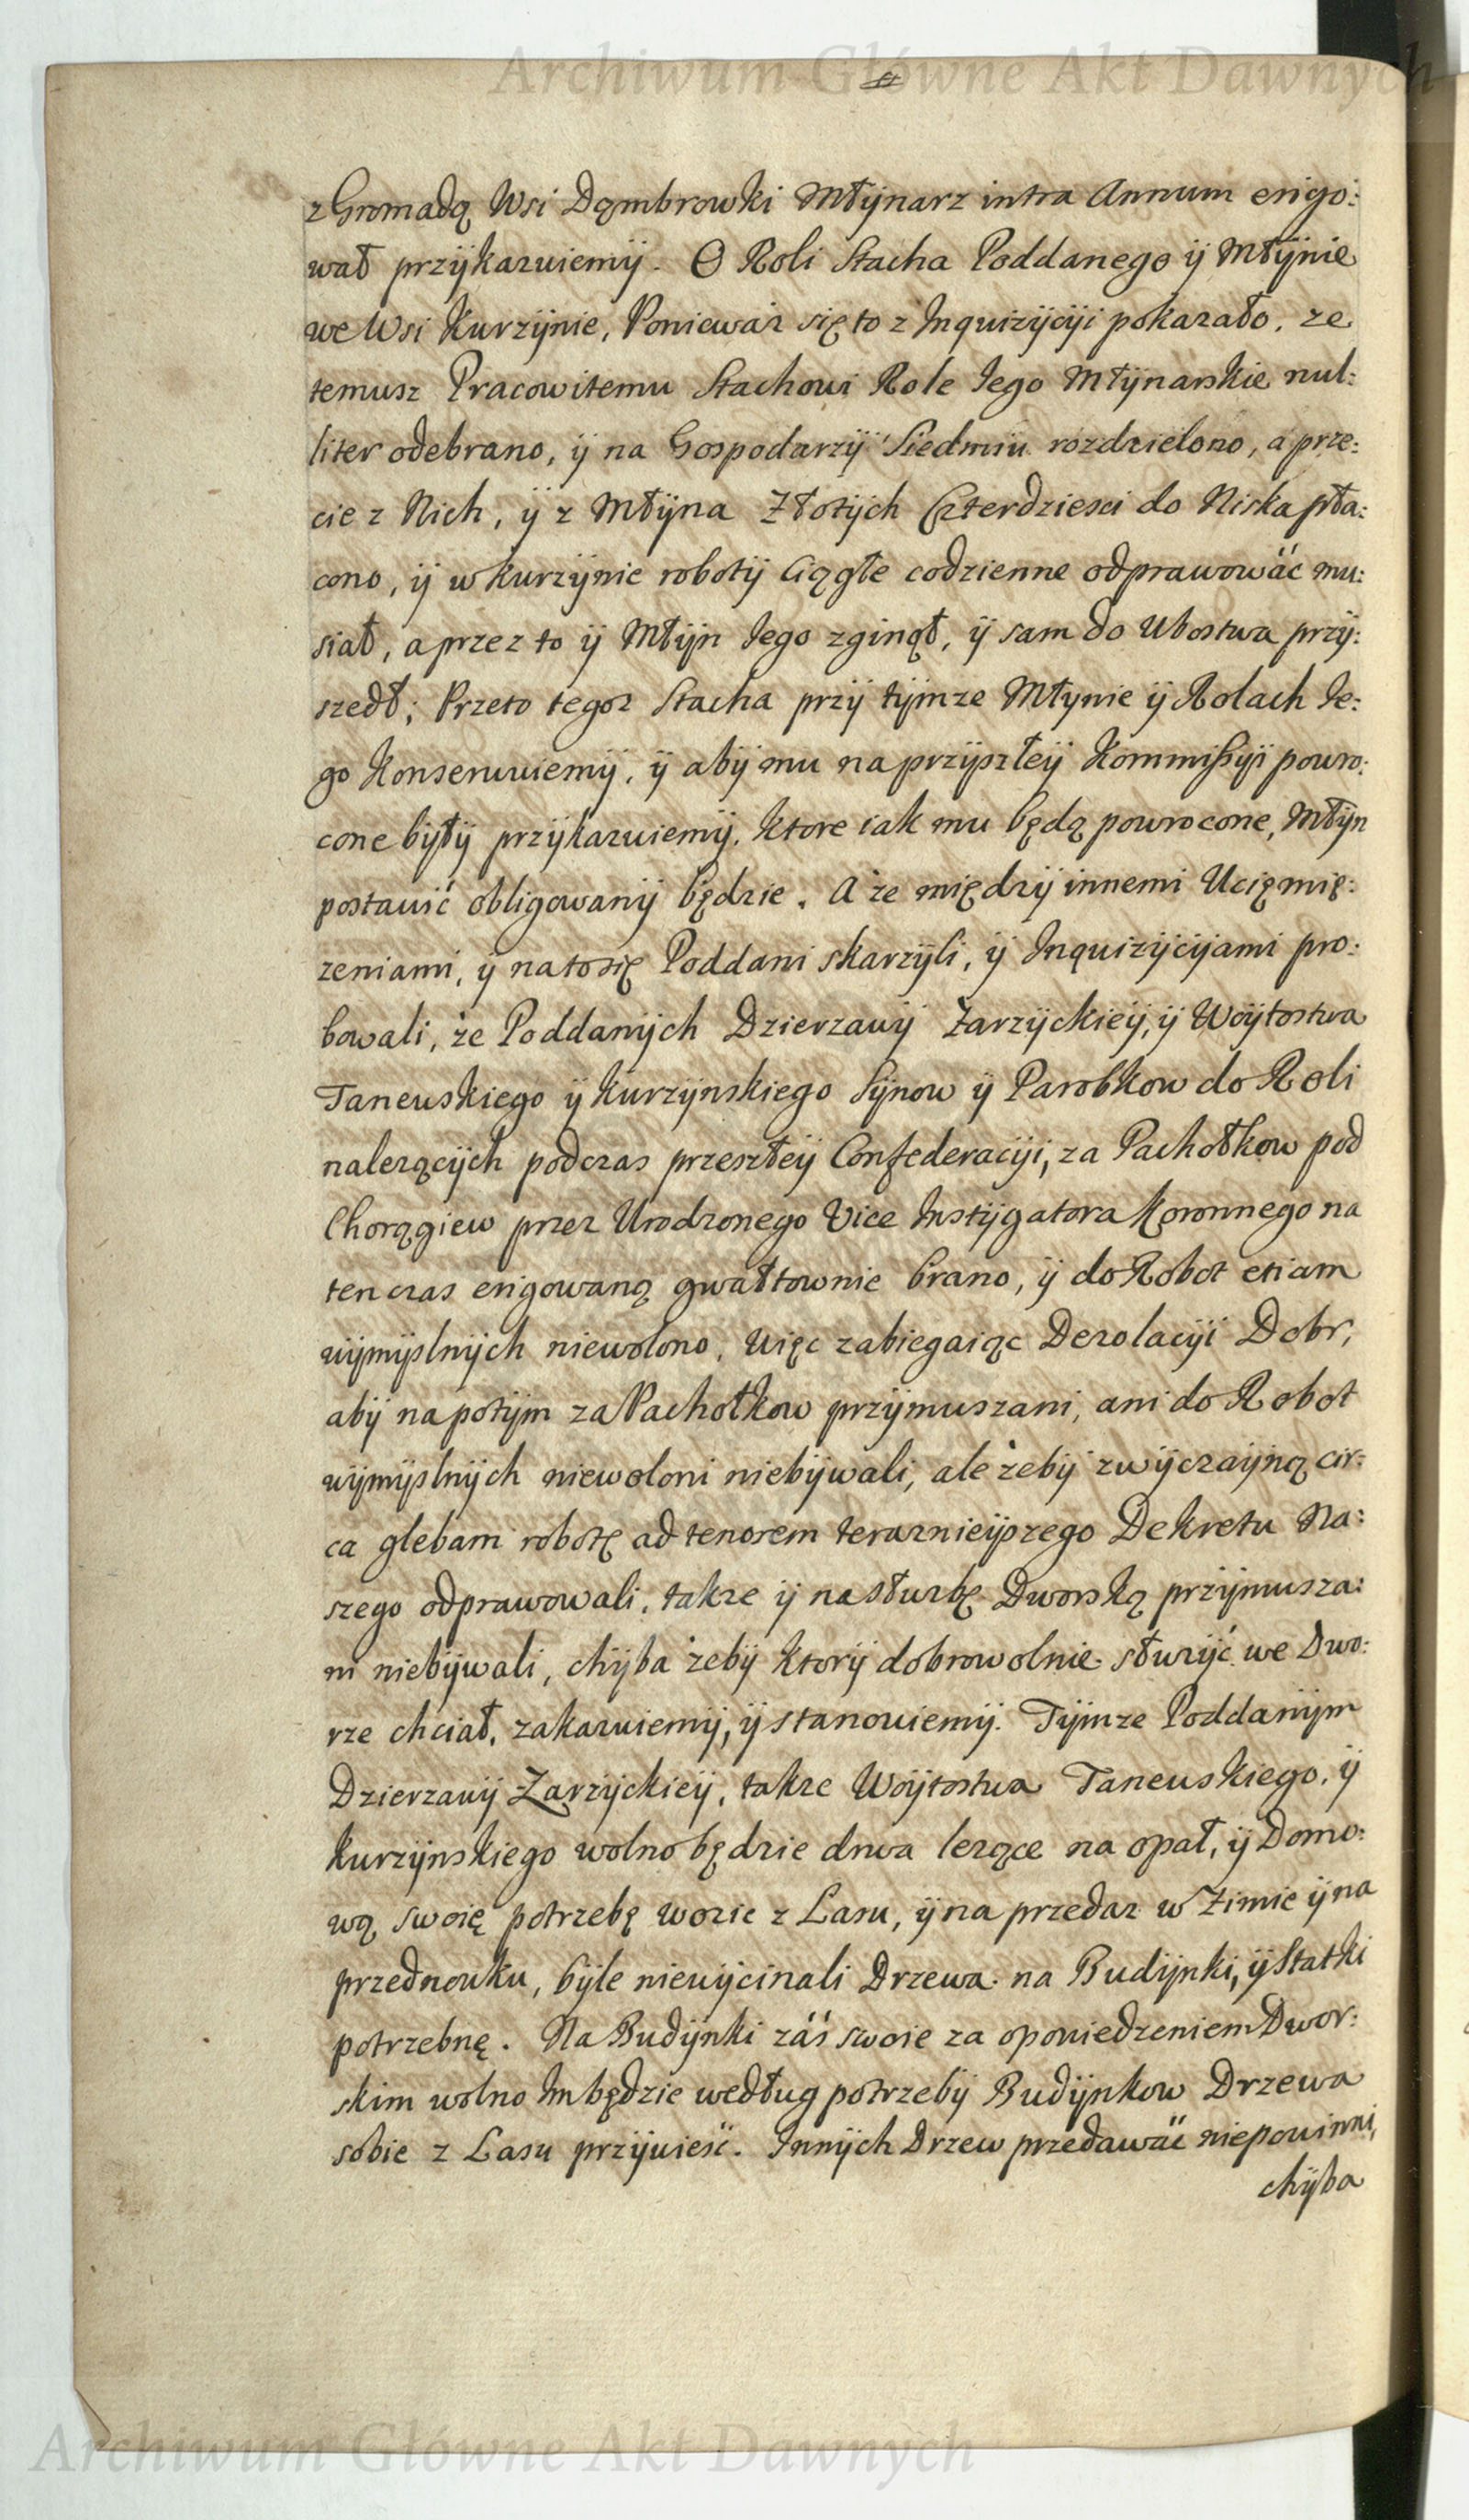 Archiwum Główne Akt Dawnych
z Gromadą Wsi Dąmbrowki Młÿnarz intra Annum erigo:
wał przÿkazuiemÿ. O Roli Stacha Poddanego ÿ Młÿnie
we Wsi Kurzÿnie, Poniewaz się to z Inquizÿcÿi pokazało, ze
temusz Pracowitemu Stachowi Role Iego Młÿnarskie nul:
liter odebrano, ÿ na Gospodarzÿ Siedmiu rozdzielono, a prze:
cie z Nich, ÿ z Młÿna Złotÿch Czterdziesci do Niska pła:
cono, ÿ w Kurzÿnie robotÿ Ciągłe codzienne odprawowäć mu:
siał, a przez to ÿ Młÿn Iego zginął, ÿ sam do Ubostwa przÿ:
szedł; Przeto tegoz Stacha przÿ tÿmze Młynie ÿ Rolach Ie:
go Konserwuiemÿ, ÿ abÿ mu na przÿszłeÿ Kommissÿi powro:
cone bÿłÿ przÿkazuiemÿ. Ktore iak mu będą powrocone, Młÿn
postawić obligowanÿ będzie. A że międzÿ innemi Ucięmię:
zeniami, ÿ na to się Poddani skarzÿli, ÿ Inquizÿcÿjami pro:
bowali, że Poddanÿch Dzierzawÿ Zarzÿckieÿ, ÿ Woÿtostwa
Tanewskiego ÿ Kurzÿnskiego Sÿnow ÿ Parobkow do Roli
nalezącÿch podczas przeszłeÿ Confederacÿi, za Pachołkow pod
Chorągiew przez Urodzonego Vice Instÿgatora Koronnego na
ten czas erigowaną gwałtownie brano, ÿ do Robot etiam
wÿmÿslnÿch niewolono. Więc zabiegaiąc Dezolacÿi Dobr,
abÿ na potÿm za Pachołkow przÿmuszani, ani do Robot
wÿmÿslnÿch niewoloni niebÿwali, ale żebÿ zwÿczaÿną cir:
ca glebam robotę ad tenorem terazniéÿszego Dekretu Na:
szego odprawowali, takze ÿ na służbę Dworską przÿmusza:
ni niebÿwali, chÿba żebÿ ktorÿ dobrowolnie służÿć we Dwo:
rze chciał, zakazuiemÿ, ÿ stanowiemÿ. Tÿmze Poddanÿm
Dzierzawÿ Zarzÿckieÿ, takze Woÿtostwa Tanewskiego, ÿ
Kurzÿnskiego wolno będzie drwa lezące na opał, ÿ Domo:
wą swoię potrzebę wozic z Lasu, ÿ na przedaz w Zimie ÿ na
przednowku, bÿle niewÿcinali Drzewa na Budÿnki, ÿ Statki
potrzebnę. Na Budÿnki záś swoie za opowiedzeniem Dwor:
skim wolno Im będzie według potrzebÿ Budÿnkow Drzewa
sobie z Lasu przÿwieść. Innÿch Drzew przedawäć niepowinni,
chÿba
Archiwum Główne Akt Dawnych